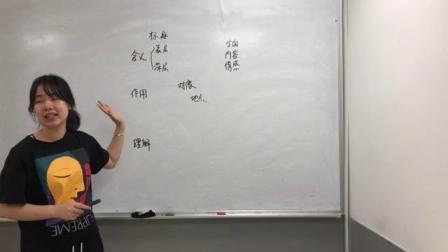 标题
含义
表层
深层
方面
内容
情感
作用
对象
地点
理解
SUPREME